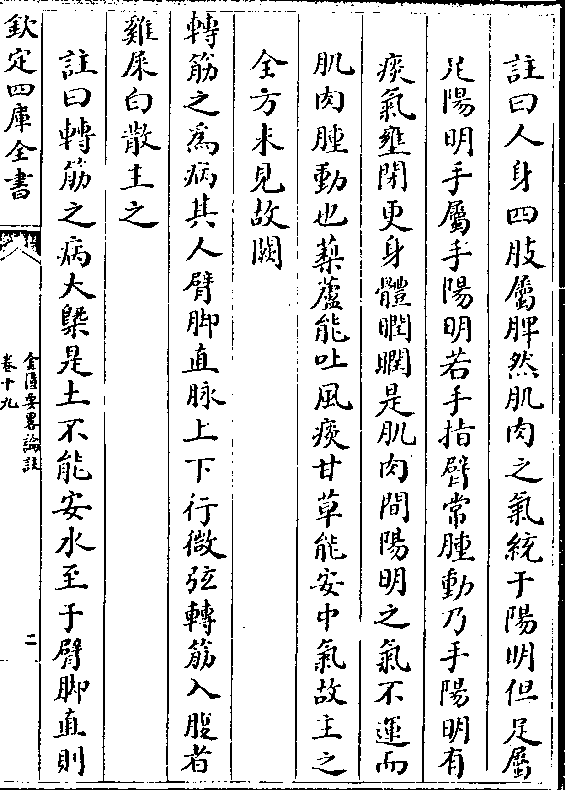 註曰人身四肢屬脾然肌肉之氣統于陽明但足屬
足陽明手屬手陽明若手指臂常腫動乃手陽明有
痰氣壅閉更身體瞤瞤是肌肉間陽明之氣不運而
肌肉腫動也藜蘆能吐風痰甘草能安中氣故主之
全方未見故闕
轉筋之為病其人臂脚直脉上下行微弦轉筋入腹者
雞屎白散主之
註曰轉筋之病大槩是土不能安水至于臂脚直則
欽定四庫全書
金匱要畧論註
卷十九
二